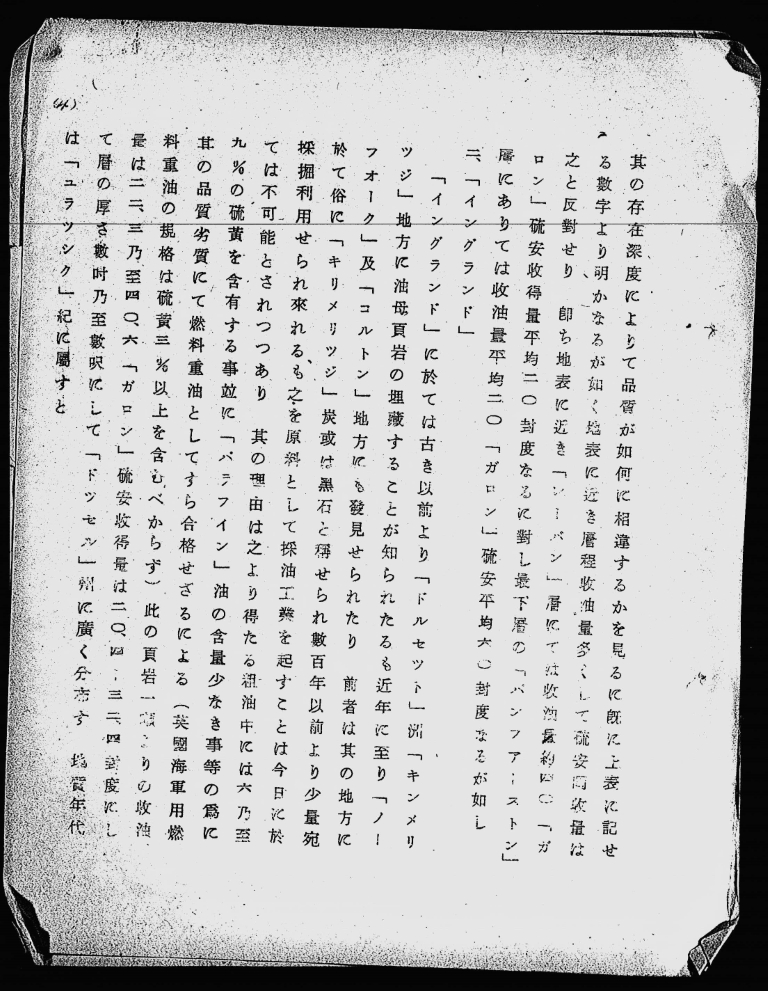 其の存在深度によりて品質が如何に相違するかを見るに既に上表に記せ
る數字より明かなるが如く地表に近き層程收油量多くして硫安間收量は
之と反對せり 卽ち地表に近き「レーバン」層にては收油量約四〇「ガ
ロン」硫安收得量平均二〇封度なるに對し最下層の「パンフアーストン」
層にありては收油量平均二〇「ガロン」硫安平均六〇封度なるが如し
二、「イングランド」
「イングランド」に於ては古き以前より「ドルセツト」洲「キンメリ
ツジ」地方に油母頁岩の埋藏することが知られたるも近年に至り「ノー
フオーク」及「コルトン」地方にも發見せられたり 前者は其の地方に
於て俗に「キリメリツジ」炭或は黑石と稱せられ數百年以前より少量宛
採掘利用せられ來れるも之を原料として採油工業を起すことは今日に於
ては不可能とされつつあり 其の理由は之より得たる粗油中には六乃至
九%の硫黃を含有する事竝に「パラフイン」油の含量少なき事等の爲に
其の品質劣質にて燃料重油としてすら合格せざるによる(英國海軍用燃
料重油の規格は硫黃三%以上を含むべからず)此の頁岩一噸よりの收油
量は二二、三乃至四〇、六「ガロン」硫安收得量は二〇、四-三二、四封度にし
て層の厚さ數吋乃至數呎にして「ドツセル」州に廣く分布す 地質年代
は「ユラツシク」紀に屬すと
(4)